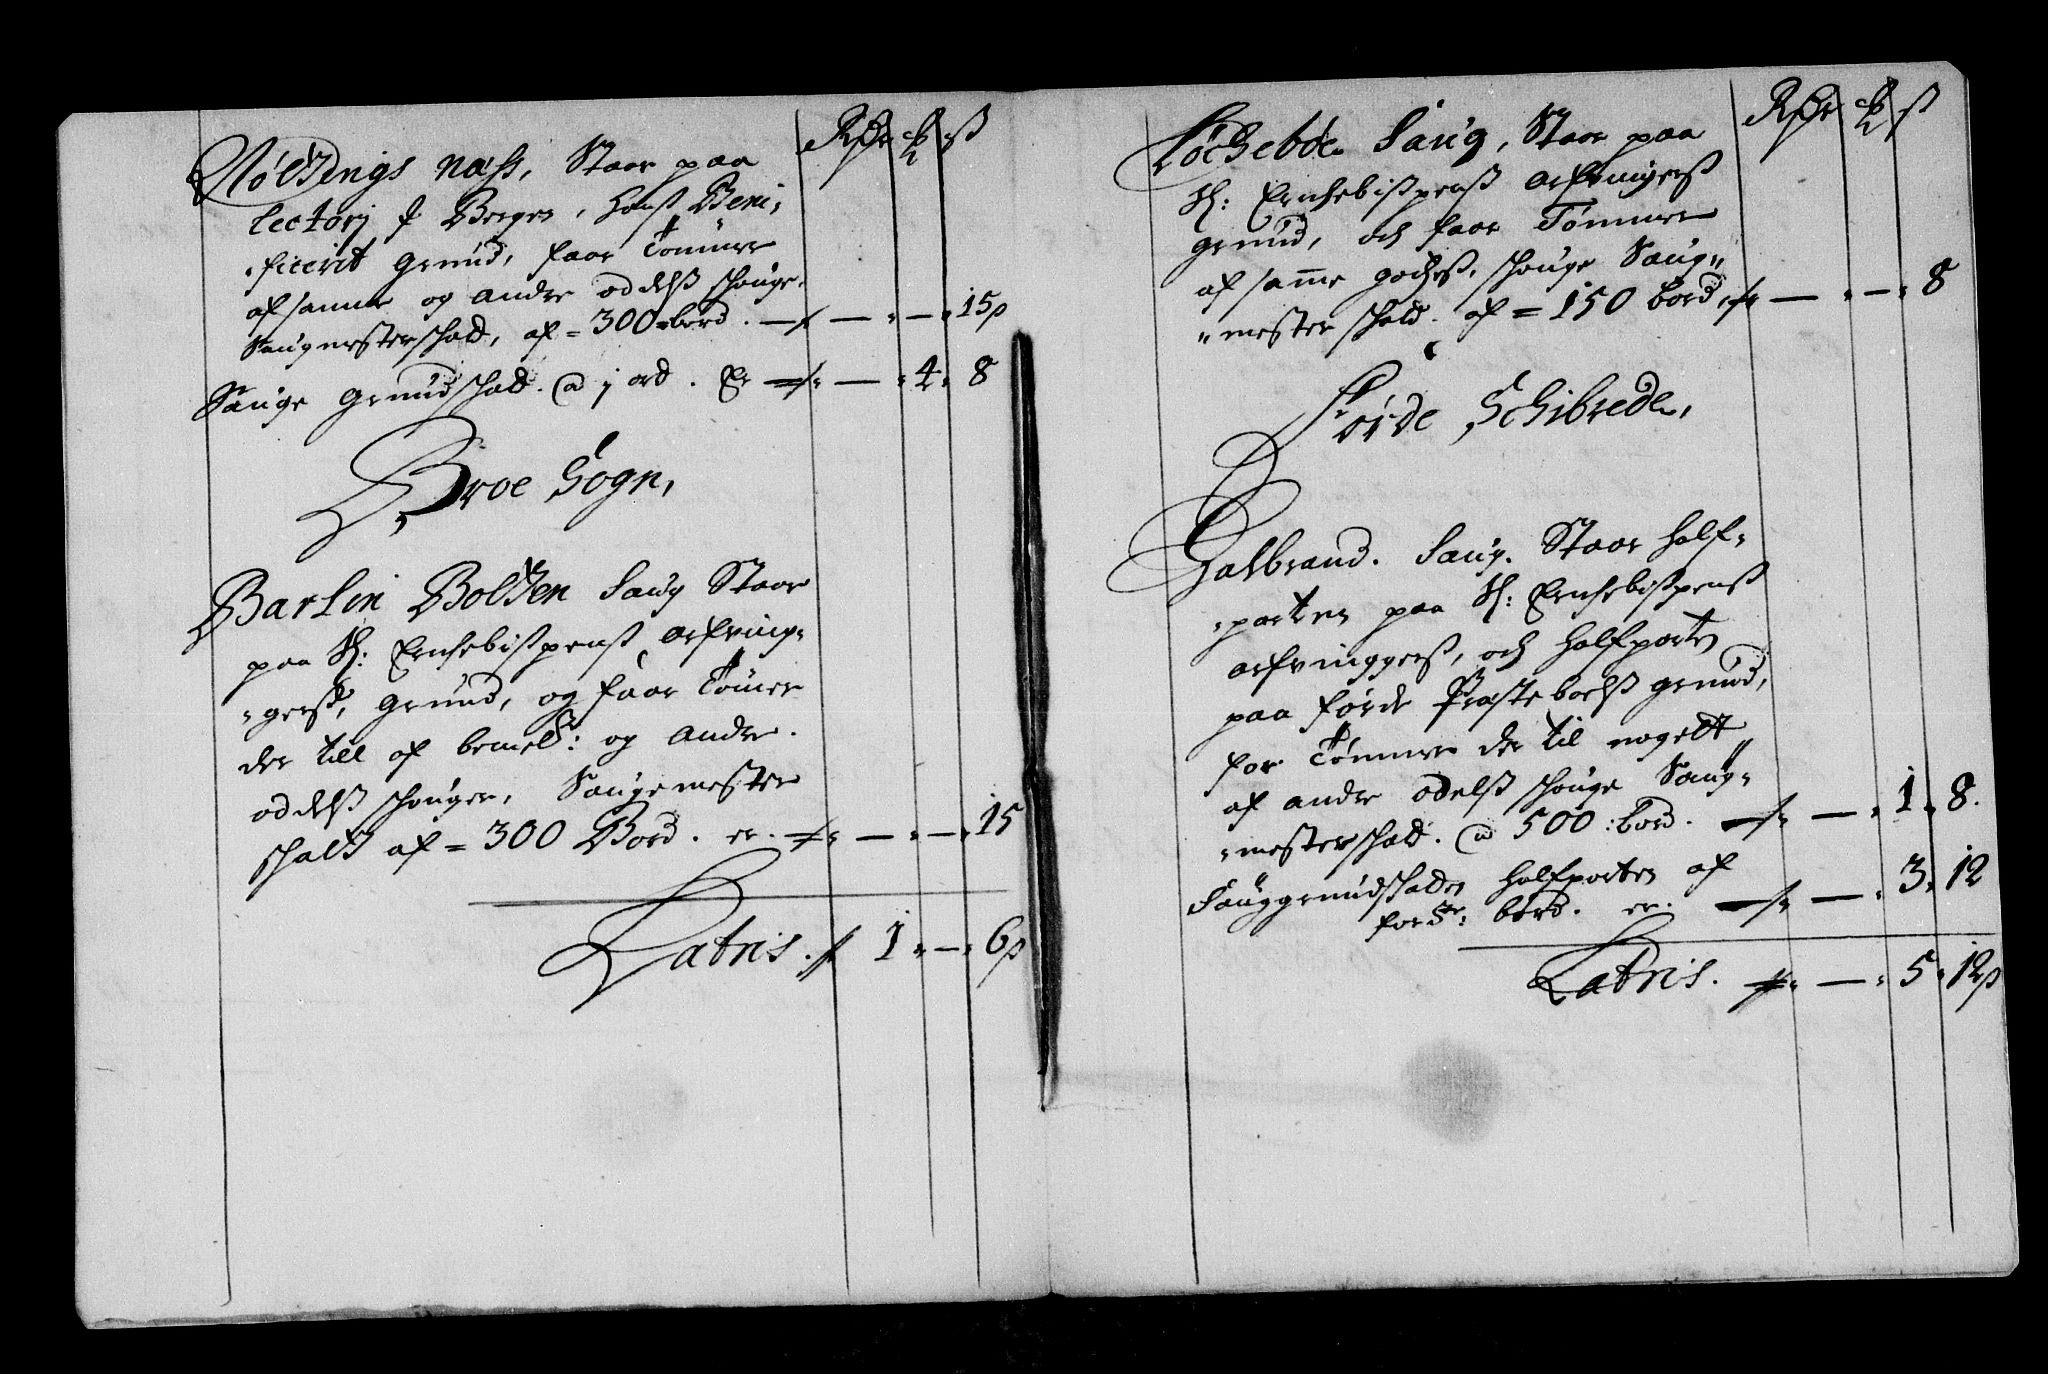 Rdr ℔ ß
Nølchings næss, Staar paa
Lectorj i Bergen, hans Beni-
ficerit grund, faar Tømmer
af samme og andre oddelß schouge.
Saugmesterschatt, af = 300 bord. — — 15 ß
Sauge Grundschatt. a j ort. Er — 4 8
Broe Sogn,
Barlin Bolchen Saug Staar
paa Sl: Erchebispens arfving-
gerß, Grund, og faar Tømer
der till af bemelt: og andre
oddelß schouger, Saugemester
schatt af = 300 Bord. er. — — 15
Latris. 1 — 6 ß
Rdr ℔ ß
Løchebøe Saug, Staar paa
Sl: Erchebispens arfvingerß
grund, och faar Tømmer
af samme godhß, schouge Saug-
mester schatt. af = 150 bord — — 8
Førde Schibrede,
Halbrand. Saug. Staar half-
parten paa Sl: Erchebispens
arfvinggerß, och halfparten
paa førde Præstebolß grund,
for Tømmer der til nogett
af andre odelß schouge Saug-
mesterschatt. a 500: bord. — 1 8.
Sauggrundschatten halfparten af
forsr: bord. er. — 3 12
Latris. — 5 12 ß